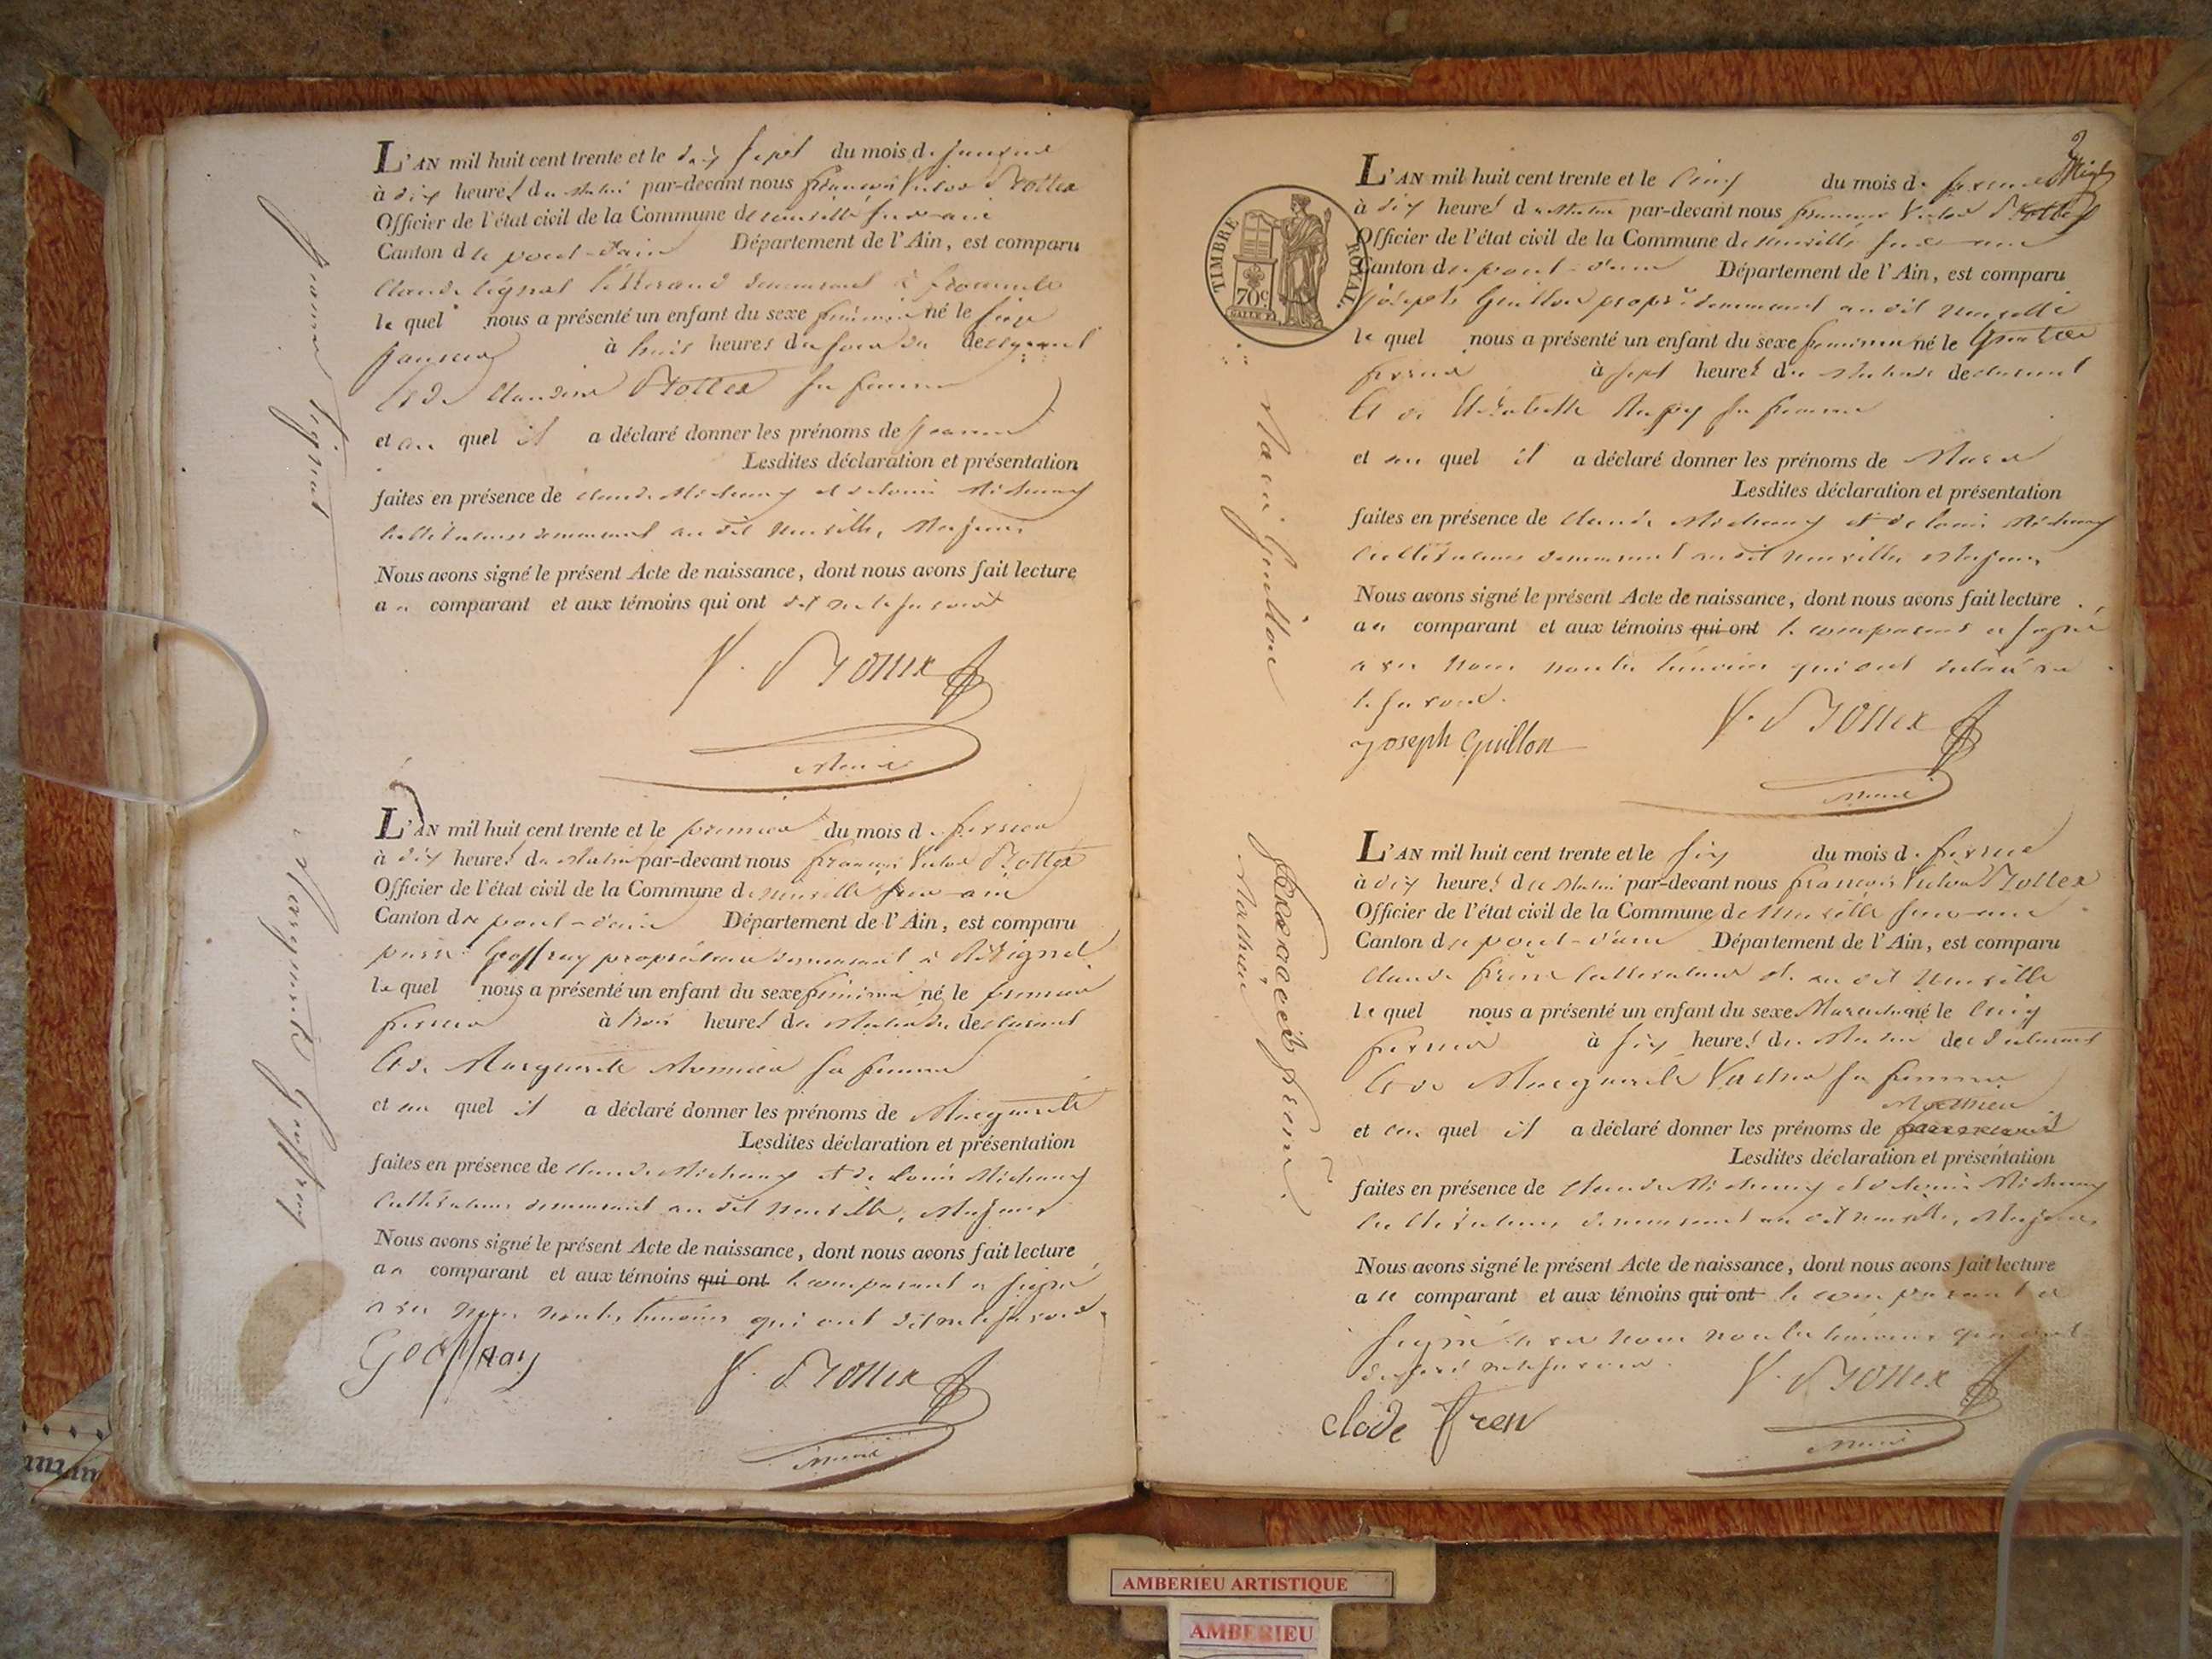 L'AN mil huit cent trente et le dix sept du mois de janvier
à dix heures du matin par-devant nous françois Victor Trottex
Officier de l'état civil de la Commune de neuville sur ain
Canton de pont-d'ain Département de l'Ain, est comparu
Claude Lignat demeurant à
le quel nous a présenté un enfant du sexe féminin né le seize
janvier à trois heures du soir du declarant
Et de Claudine Trottex sa femme
et au quel il a déclaré donner les prénoms de jeanne
Lesdites déclaration et présentation
faites en présence de claude Michaud et de louis Michaud
cultivateurs demeurant au dit neuville, Majeurs
Nous avons signé le présent Acte de naissance, dont nous avons fait lecture
au comparant et aux témoins qui ont dit ne le savoir
V. Trottex
Maire
jeanne Lignat
L'AN mil huit cent trente et le premier du mois de fevrier
à dix heures du Matin par-devant nous françois Victor Trottex
Officier de l'état civil de la Commune de neuville sur ain
Canton de pont-d'ain Département de l'Ain, est comparu
Geoffray propriétaire demeurant à
le quel nous a présenté un enfant du sexe féminin né le premier
fevrier à trois heures du Matin du declarant
Et de Marguerite sa femme
et au quel il a déclaré donner les prénoms de Marguerite
Lesdites déclaration et présentation
faites en présence de claude Michaud et de Louis Michaud
cultivateurs demeurant au dit neuville, Majeurs
Nous avons signé le présent Acte de naissance, dont nous avons fait lecture
au comparant et aux témoins qui ont le comparant a signé
avec nous non les témoins qui ont dit ne le savoir.
Geoffray
V. Trottex
Maire
Marguerite Geoffray
2
TIMBRE ROYAL
70c
L'AN mil huit cent trente et le cinq du mois de fevrier
à dix heures du Matin par-devant nous françois Victor Trottex
Officier de l'état civil de la Commune de neuville sur ain
Canton de pont-d'ain Département de l'Ain, est comparu
joseph Guillon demeurant au dit neuville
le quel nous a présenté un enfant du sexe feminin né le quatre
fevrier à sept heures du Matin du declarant
Et de sa femme
et au quel il a déclaré donner les prénoms de Marie
Lesdites déclaration et présentation
faites en présence de claude Michaud et de louis Michaud
cultivateurs demeurant au dit neuville, Majeurs
Nous avons signé le présent Acte de naissance, dont nous avons fait lecture
au comparant et aux témoins qui ont le comparant a signé
avec nous non les témoins qui ont déclaré ne
le savoir.
joseph Guillon
V. Trottex
Maire
Marie Guillon
L'AN mil huit cent trente et le six du mois de fevrier
à dix heures du Matin par-devant nous françois Victor Trottex
Officier de l'état civil de la Commune de Neuville sur ain
Canton de pont-d'ain Département de l'Ain, est comparu
Claude cultivateur au dit Neuville
le quel nous a présenté un enfant du sexe Masculin né le cinq
fevrier à six heures du Matin de declarant
Et de Marguerite sa femme
Mathieu
et au quel il a déclaré donner les prénoms de
Lesdites déclaration et présentation
faites en présence de Claude Michaud et de louis Michaud
cultivateurs demeurant au dit neuville, Majeurs
Nous avons signé le présent Acte de naissance, dont nous avons fait lecture
au comparant et aux témoins qui ont le comparant a
signé avec nous non les témoins qui ont
ne le savoir.
clode fren
V. Trottex
Maire
Mathieu
AMBERIEU ARTISTIQUE
AMBERIEU